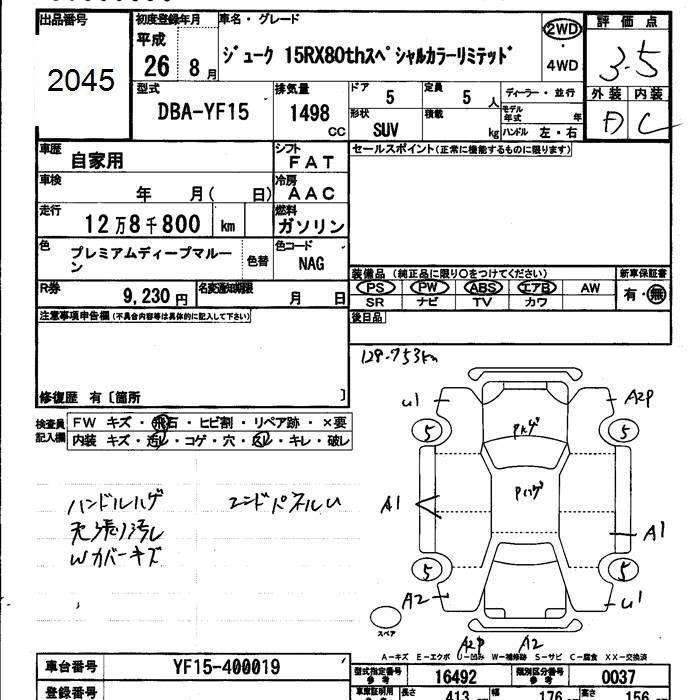 出品番号 初度登録年月 車名・グレード 評価点
2045 平成 26 8月 ジューク 15RX80thスペシャルカラーリミテッド 2WD 4WD 3.5
型式 排気量 ドア 5 定員 5人 ディーラー・並行 外装 内装
DBA-YF15 1498 CC 形状 SUV 積載 kg モデル年式 年 ハンドル 左・右 D C
車歴 自家用 シフト FAT セールスポイント(正常に機能するものに限ります)
車検 年 月( 日) 冷房 AAC
走行 12万8千800 km 燃料 ガソリン
色 プレミアムディープマルーン 色替 色コード NAG
装備品 (純正品に限り○をつけてください) 新車保証書
R券 9,230円 名変通知期限 月 日 PS PW ABS エアB AW 有・無
SR ナビ TV カワ
注意事項申告欄(不具合内容等は具体的に記入して下さい) 後日品
128.753km
修復歴 有〔箇所 〕
検査員記入欄 FW キズ・飛石・ヒビ割・リペア跡・×要
内装 キズ・汚レ・コゲ・穴・スレ・キレ・破レ
U1 A2P
5 5
Pハゲ
Pハゲ
ハンドルハゲ エンドパネルU
天張り汚レ
Wカバーキズ
A1 A1
5 5
A2 U1
スペア
A2P A2
A-キズ E-エクボ U-凹み W-補修跡 S-サビ C-腐食 XX-交換済
車台番号 YF15-400019 型式指定番号 参考 16492 類別区分番号 参考 0037
登録番号 車庫証明用 長さ 413 cm 幅 176 cm 高さ 156 cm